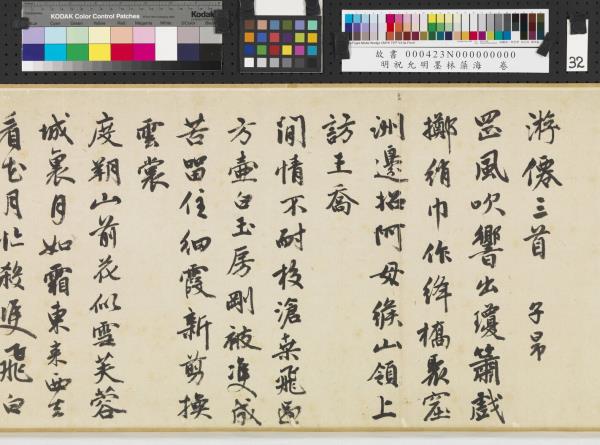 KODAK Color Control Patches
Kodak
故書 000423N000000000
明祝允明墨林藻海 卷
32
游僊三首 子昂
罡風吹響出瓊簫戲
擲綃巾作絳橋聚窟
洲邊招阿母緱山領上
訪王喬
閒情不耐校滄桑飛過
方壺白玉房剛被雙成
苦留住細霞新剪換
雲裳
度朔山前花似雪芙蓉
城裏月如霜東來西去
看花月忙殺雙飛白